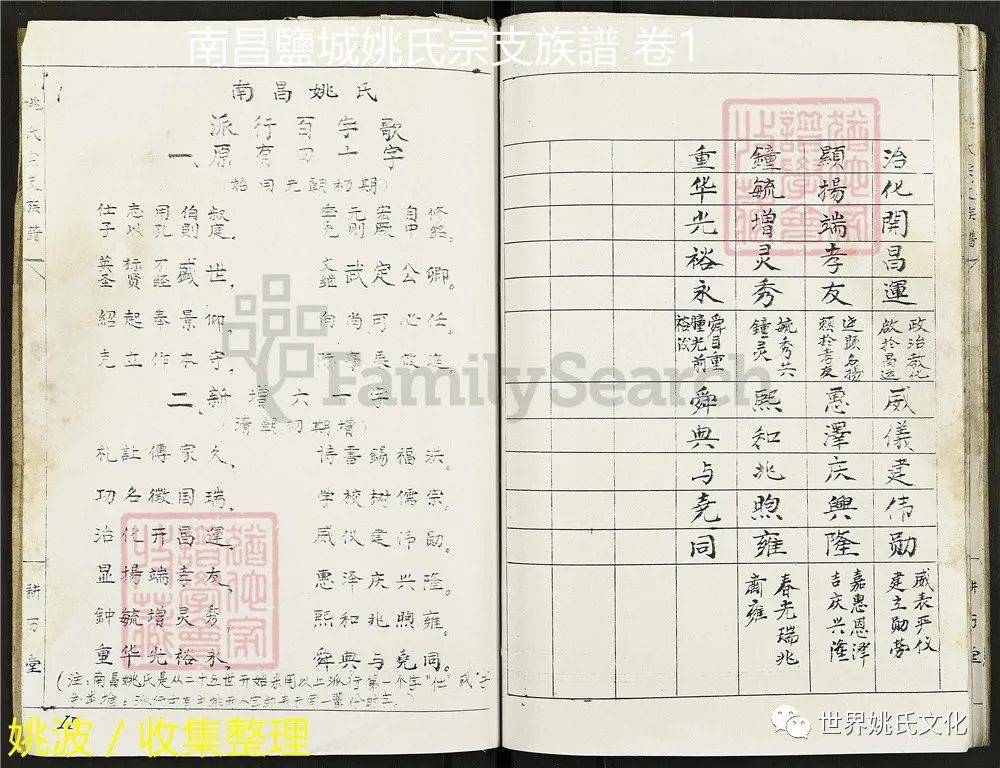 南昌鹽城姚氏宗支族譜 卷1
南昌姚氏
派行百字歌
一、原有四十字
(始用元朝初期)
仕志用伯叔
子以孔則庭。
李元宏自修
克则慶中銘。
英标才盛世,
圣贤经
文武定公卿。
继
紹起奉景仰,
向尚可心任。
克立作本守,
二、新增六十字
(清朝初期增)
礼让傳家久,
詩書錫福洪。
功名徵国瑞,
学校树儒宗。
治化开昌運,
威仪建伟勋。
显揚端孝友,
惠泽庆兴隆。
钟毓增灵秀,
熙和兆煦雍。
重华光裕永,
舜典与堯同。
(注:南昌姚氏是从二十五世开始采用以上派行第一个字"仕"或"子"
耕万堂
治化開昌運
政治教化
啟於昌运
威儀建伟勋
威表严仪
建立勋劳
顯揚端孝友
显题名揚
惠澤庆興隆
嘉惠恩泽
吉庆兴隆
鐘毓增灵秀
毓秀共
鐘灵
熙和兆煦雍
春光瑞兆
肅雍
重华光裕永
舜目重
瞳光前
裕後
舜典与堯同
姚波/收集整理
世界姚氏文化
FamilySearch